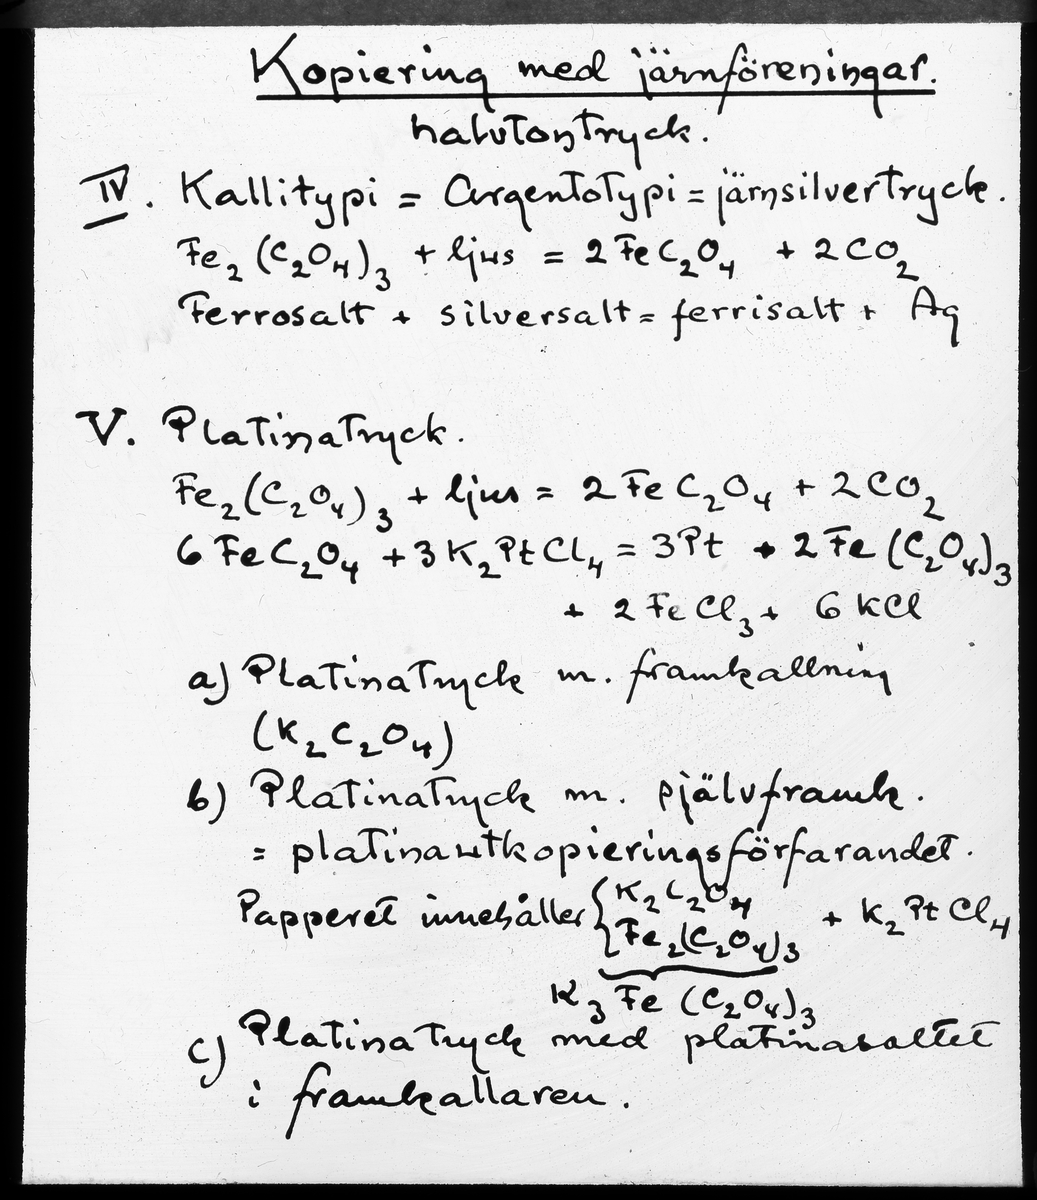 Kopiering med järnföreningar.
halvtontryck.
IV. Kallitypi = Argentotypi = järnsilvertryck.
Fe₂(C₂O₄)₃ + ljus = 2FeC₂O₄ + 2CO₂
Ferrosalt + silversalt = ferrisalt + Ag
V. Platinatryck.
Fe₂(C₂O₄)₃ + ljus = 2FeC₂O₄ + 2CO₂
6FeC₂O₄ + 3K₂PtCl₄ = 3Pt + 2Fe(C₂O₄)₃
+ 2FeCl₃ + 6KCl
a) Platinatryck m. framkallning
(K₂C₂O₄)
b) Platinatryck m. självframk.
= platinautkopieringsförfarandet.
Papperet innehåller { K₂C₂O₄
Fe₂(C₂O₄)₃ + K₂PtCl₄
K₃Fe(C₂O₄)₃
c) Platinatryck med platinasaltet
i framkallaren.